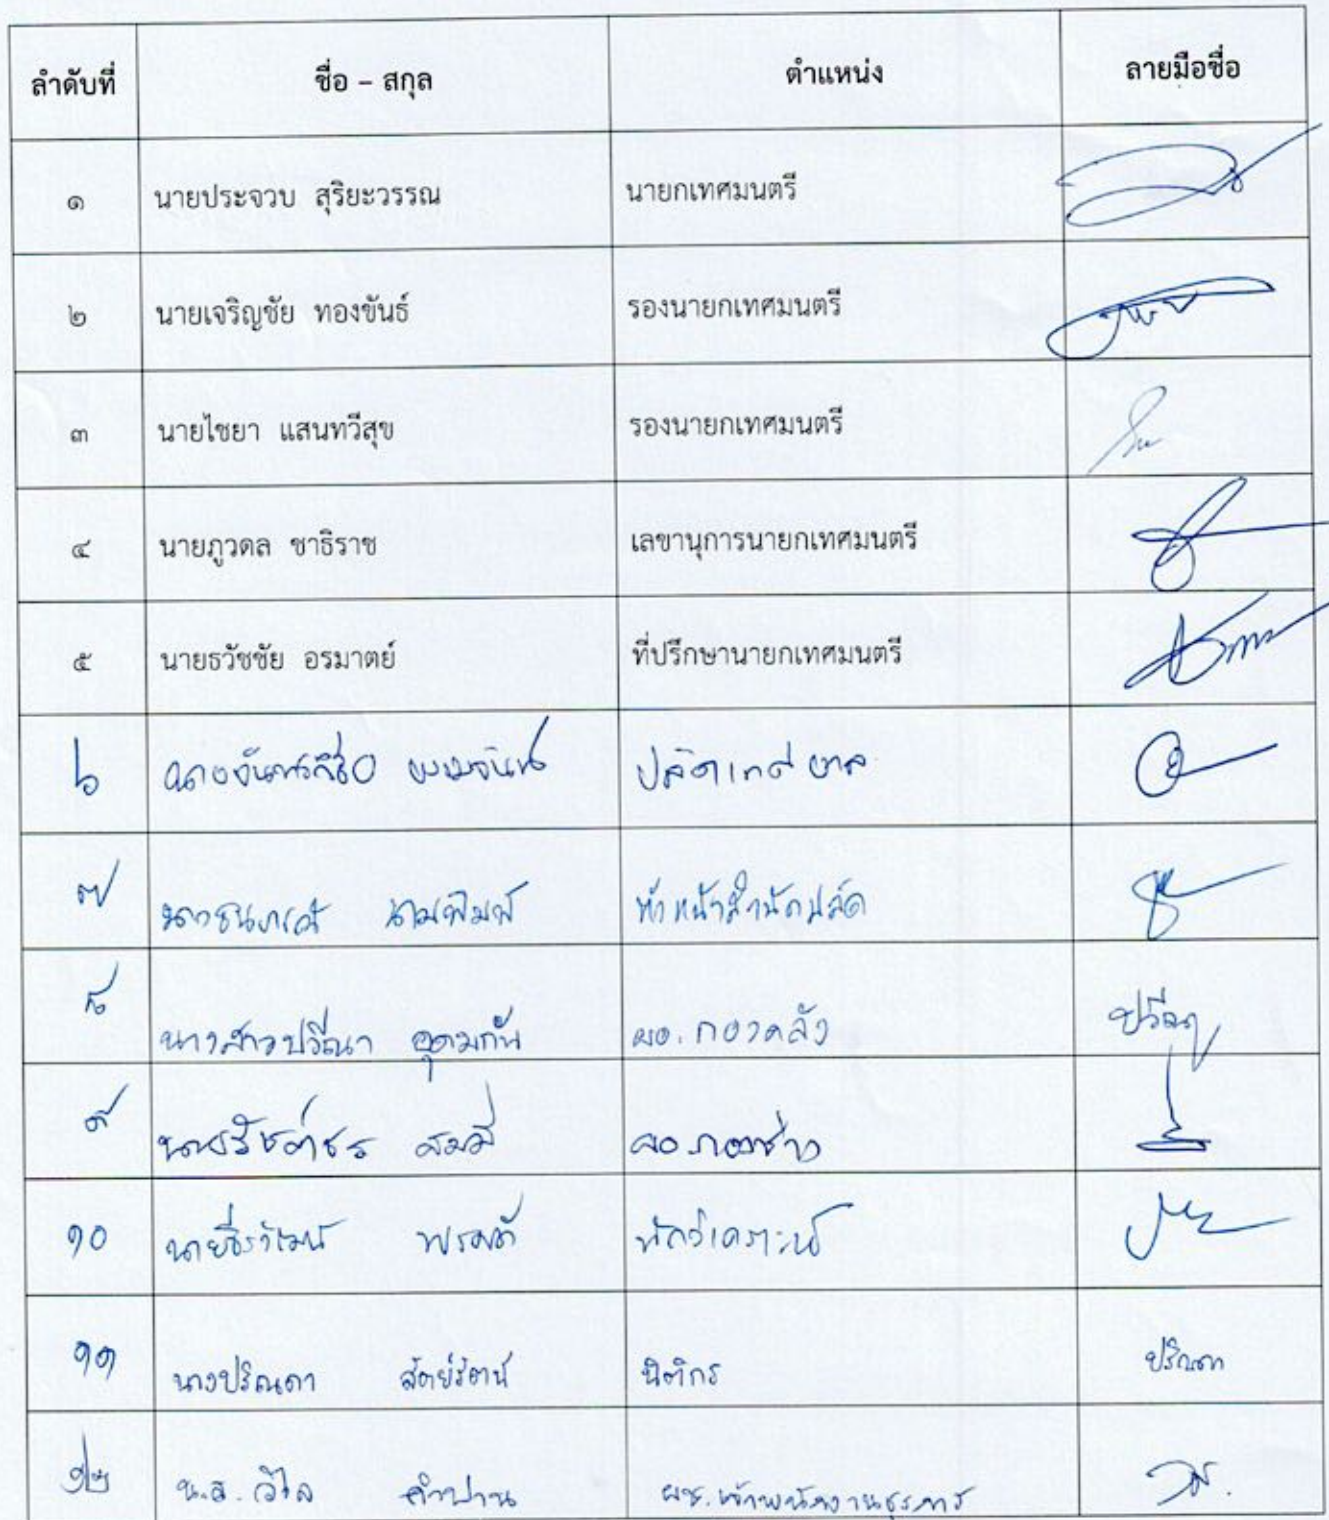 ลำดับที่ ชื่อ – สกุล ตำแหน่ง ลายมือชื่อ
๑ นายประจวบ สุริยะวรรณ นายกเทศมนตรี
๒ นายเจริญชัย ทองขันธ์ รองนายกเทศมนตรี
๓ นายไชยา แสนทวีสุข รองนายกเทศมนตรี
๔ นายภูวดล ชาธิราช เลขานุการนายกเทศมนตรี
๕ นายธวัชชัย อรมาตย์ ที่ปรึกษานายกเทศมนตรี
๖ ปลัดเทศบาล
๗ นามพิมพ์ หัวหน้าสำนักปลัด
๘ นางสาวปวีณา อุดมกัน ผอ.กองคลัง ปวีณา
๙ ผอ.กองช่าง
๑๐ นักวิเคราะห์
๑๑ นางปริณดา สัตย์รัตน์ นิติกร ปริณดา
๑๒ น.ส. วิไล คำปาน ผช.เจ้าพนักงานธุรการ